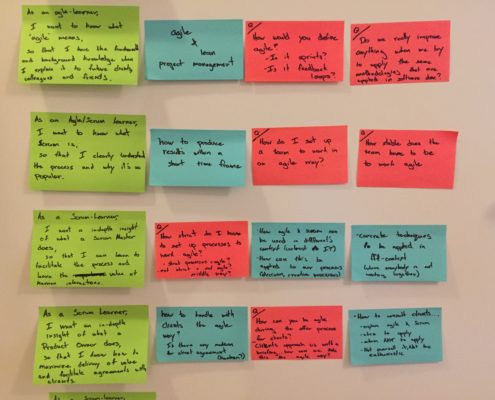 As an agile-learner,
I want to know what
"agile" means,
so that I have the
and background knowledge when
I explain it to future clients,
colleagues and friends.
agile
&
lean
project management
Q
How would you define
agile?
- Is it sprints?
- Is it feedback
loops?
Q
Do we really improve
anything when we try
to apply the same
methodologies that are
applied in software dev.?
As an Agile/Scrum learner,
I want to know what
Scrum is,
so that I clearly understand
the process and why it's so
popular.
how to produce
results within a
short time frame
Q
How do I set up
a team to work in
an agile way?
Q
How stable does the
team have to be
to work agile
As a Scrum-Learner,
I want a in-depth insight
of what a Scrum Master
does,
so that I can learn to
facilitate the process and
the value of
human interactions.
Q
How strict do I have
to set up processes to
work agile?
- strict processes = agile?
- not strict = not agile?
middle way?
- How agile & scrum can
be used in different
context (instead of IT)
- How can this be
applied to our processes
(decision, creative processes)
- concrete techniques
to be applied in
-context
(where everybody is not
working together)
As a Scrum Learner,
I want an in-depth
insight of what a
Product Owner does,
so that I know how to
maximize delivery of value
and facilitate agreements with
clients.
how to handle with
clients the agile
way?
Is there any
for strict agreement
Q
How can you be agile
during the offer process
for clients?
Clients approach us with a
briefing, how can we make
this the agile way?
- How to consult clients...
- explain agile & Scrum
- when to apply
- when NOT to apply
- Not oversell it, Not too
enthusiastic
As a Scrum-learner,
delivery of